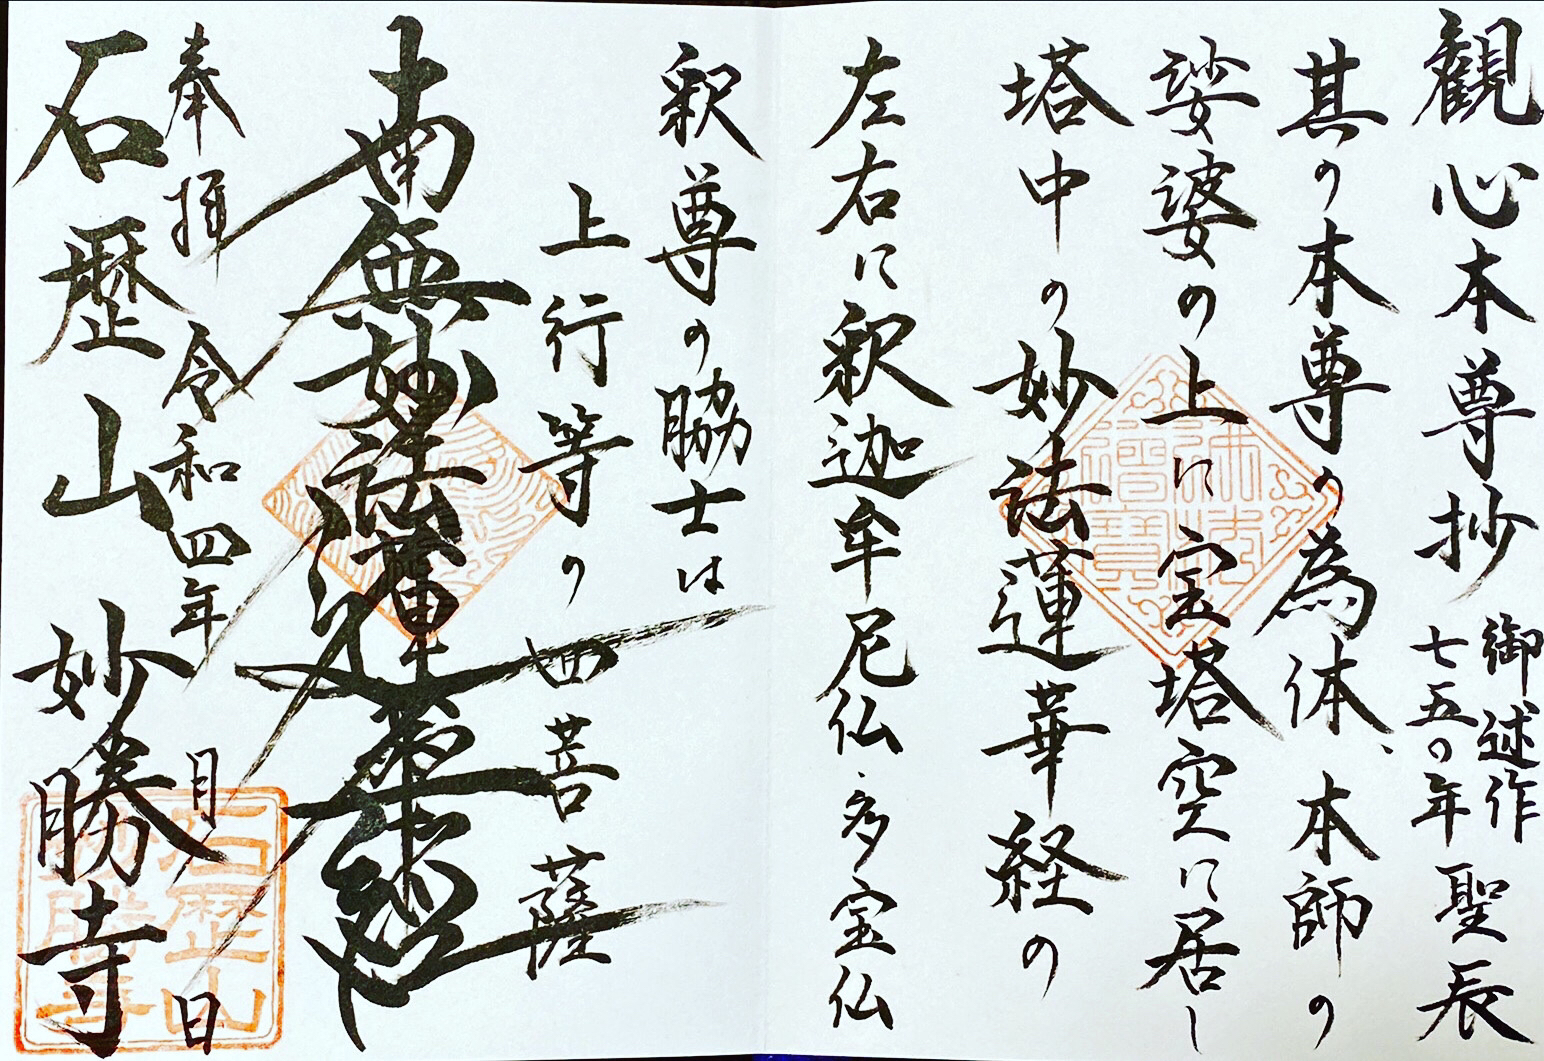 観心本尊抄
御述作
七五〇年聖辰
其の本尊の為体、本師の
娑婆の上に宝塔空に居し
塔中の妙法蓮華経の
左右に釈迦牟尼仏多宝仏
釈尊の脇士は
上行等の四菩薩
南無妙法蓮華経
奉拝 令和四年 月 日
石歴山 妙勝寺
石歴山
妙勝寺